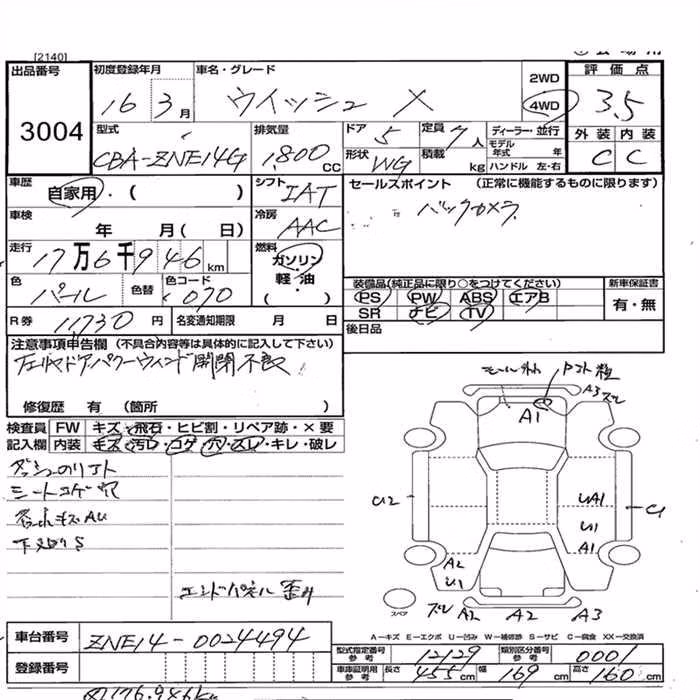 [2140]
出品番号 3004
初度登録年月 16 3月
車名・グレード ウイッシュ X
2WD
4WD
評価点 3.5
外装 内装
C C
型式 CBA-ZNE14G
排気量 1,800 CC
ドア 5
定員 7人
ディーラー・並行
モデル年式 年
形状 WG
積載 kg
ハンドル 左・右
車歴 自家用・( )
シフト IAT
セールスポイント (正常に機能するものに限ります)
バックカメラ
車検 年 月( 日)
冷房 AAC
走行 17万6千946km
燃料 ガソリン
軽・油
・( )
色 パール 色替
色コード 070
装備品(純正品に限り○をつけてください)
PS PW ABS エアB
SR ナビ TV
新車保証書
有・無
R券 11730円
名変通知期限 月 日
後日品
注意事項申告欄 (不具合内容等は具体的に記入して下さい)
左リヤドアパワーウィンド開閉不良
修復歴 有 (箇所 )
検査員記入欄
FW キズ・飛石・ヒビ割・リペア跡・×要
内装 キズ・汚レ・コゲ・穴・スレ・キレ・破レ
シートコゲ穴
エンドパネル歪み
A3
A1
U2
UA1
U1
A1
A2
U1
スペア
A2 A2 A3
A-キズ E-エクボ U-凹み W-補修跡 S-サビ C-腐食 XX-交換済
車台番号 ZNE14-0024494
型式指定番号 参考 12129
類別区分番号 参考 0001
登録番号
車庫証明用 参考 長さ 455cm 幅 169cm 高さ 160cm